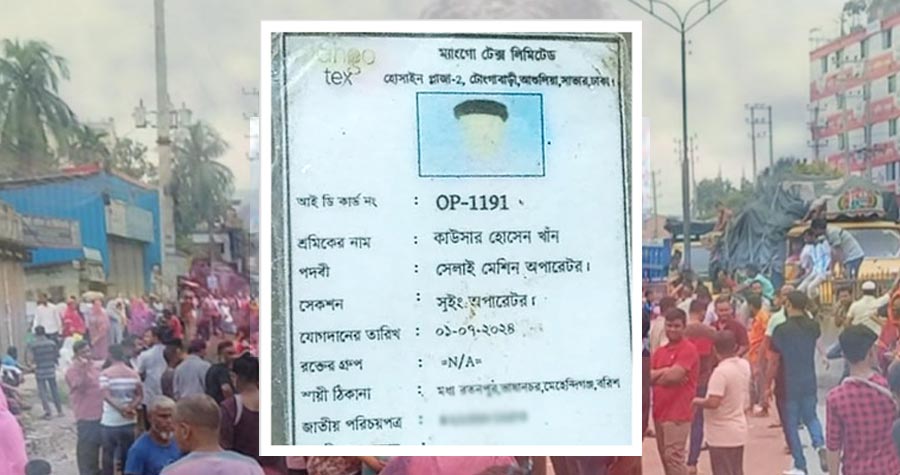 ম্যাংগো টেক্স লিমিটেড
tex
হোসাইন প্লাজা-2, টোংগাবাড়ী,আশুলিয়া,সাভার,ঢাকা।
আই ডি কার্ড নং : OP-1191
শ্রমিকের নাম : কাউসার হোসেন খাঁন
পদবী : সেলাই মেশিন অপারেটর।
সেকশন : সুইং অপারেটর।
যোগদানের তারিখ : ০১-০৭-২০২৪
রক্তের গ্রুপ : =N/A=
স্থায়ী ঠিকানা : মধ্য রতনপুর,ভাষানচর,মেহেন্দিগঞ্জ,বরিশ
জাতীয় পরিচয়পত্র :